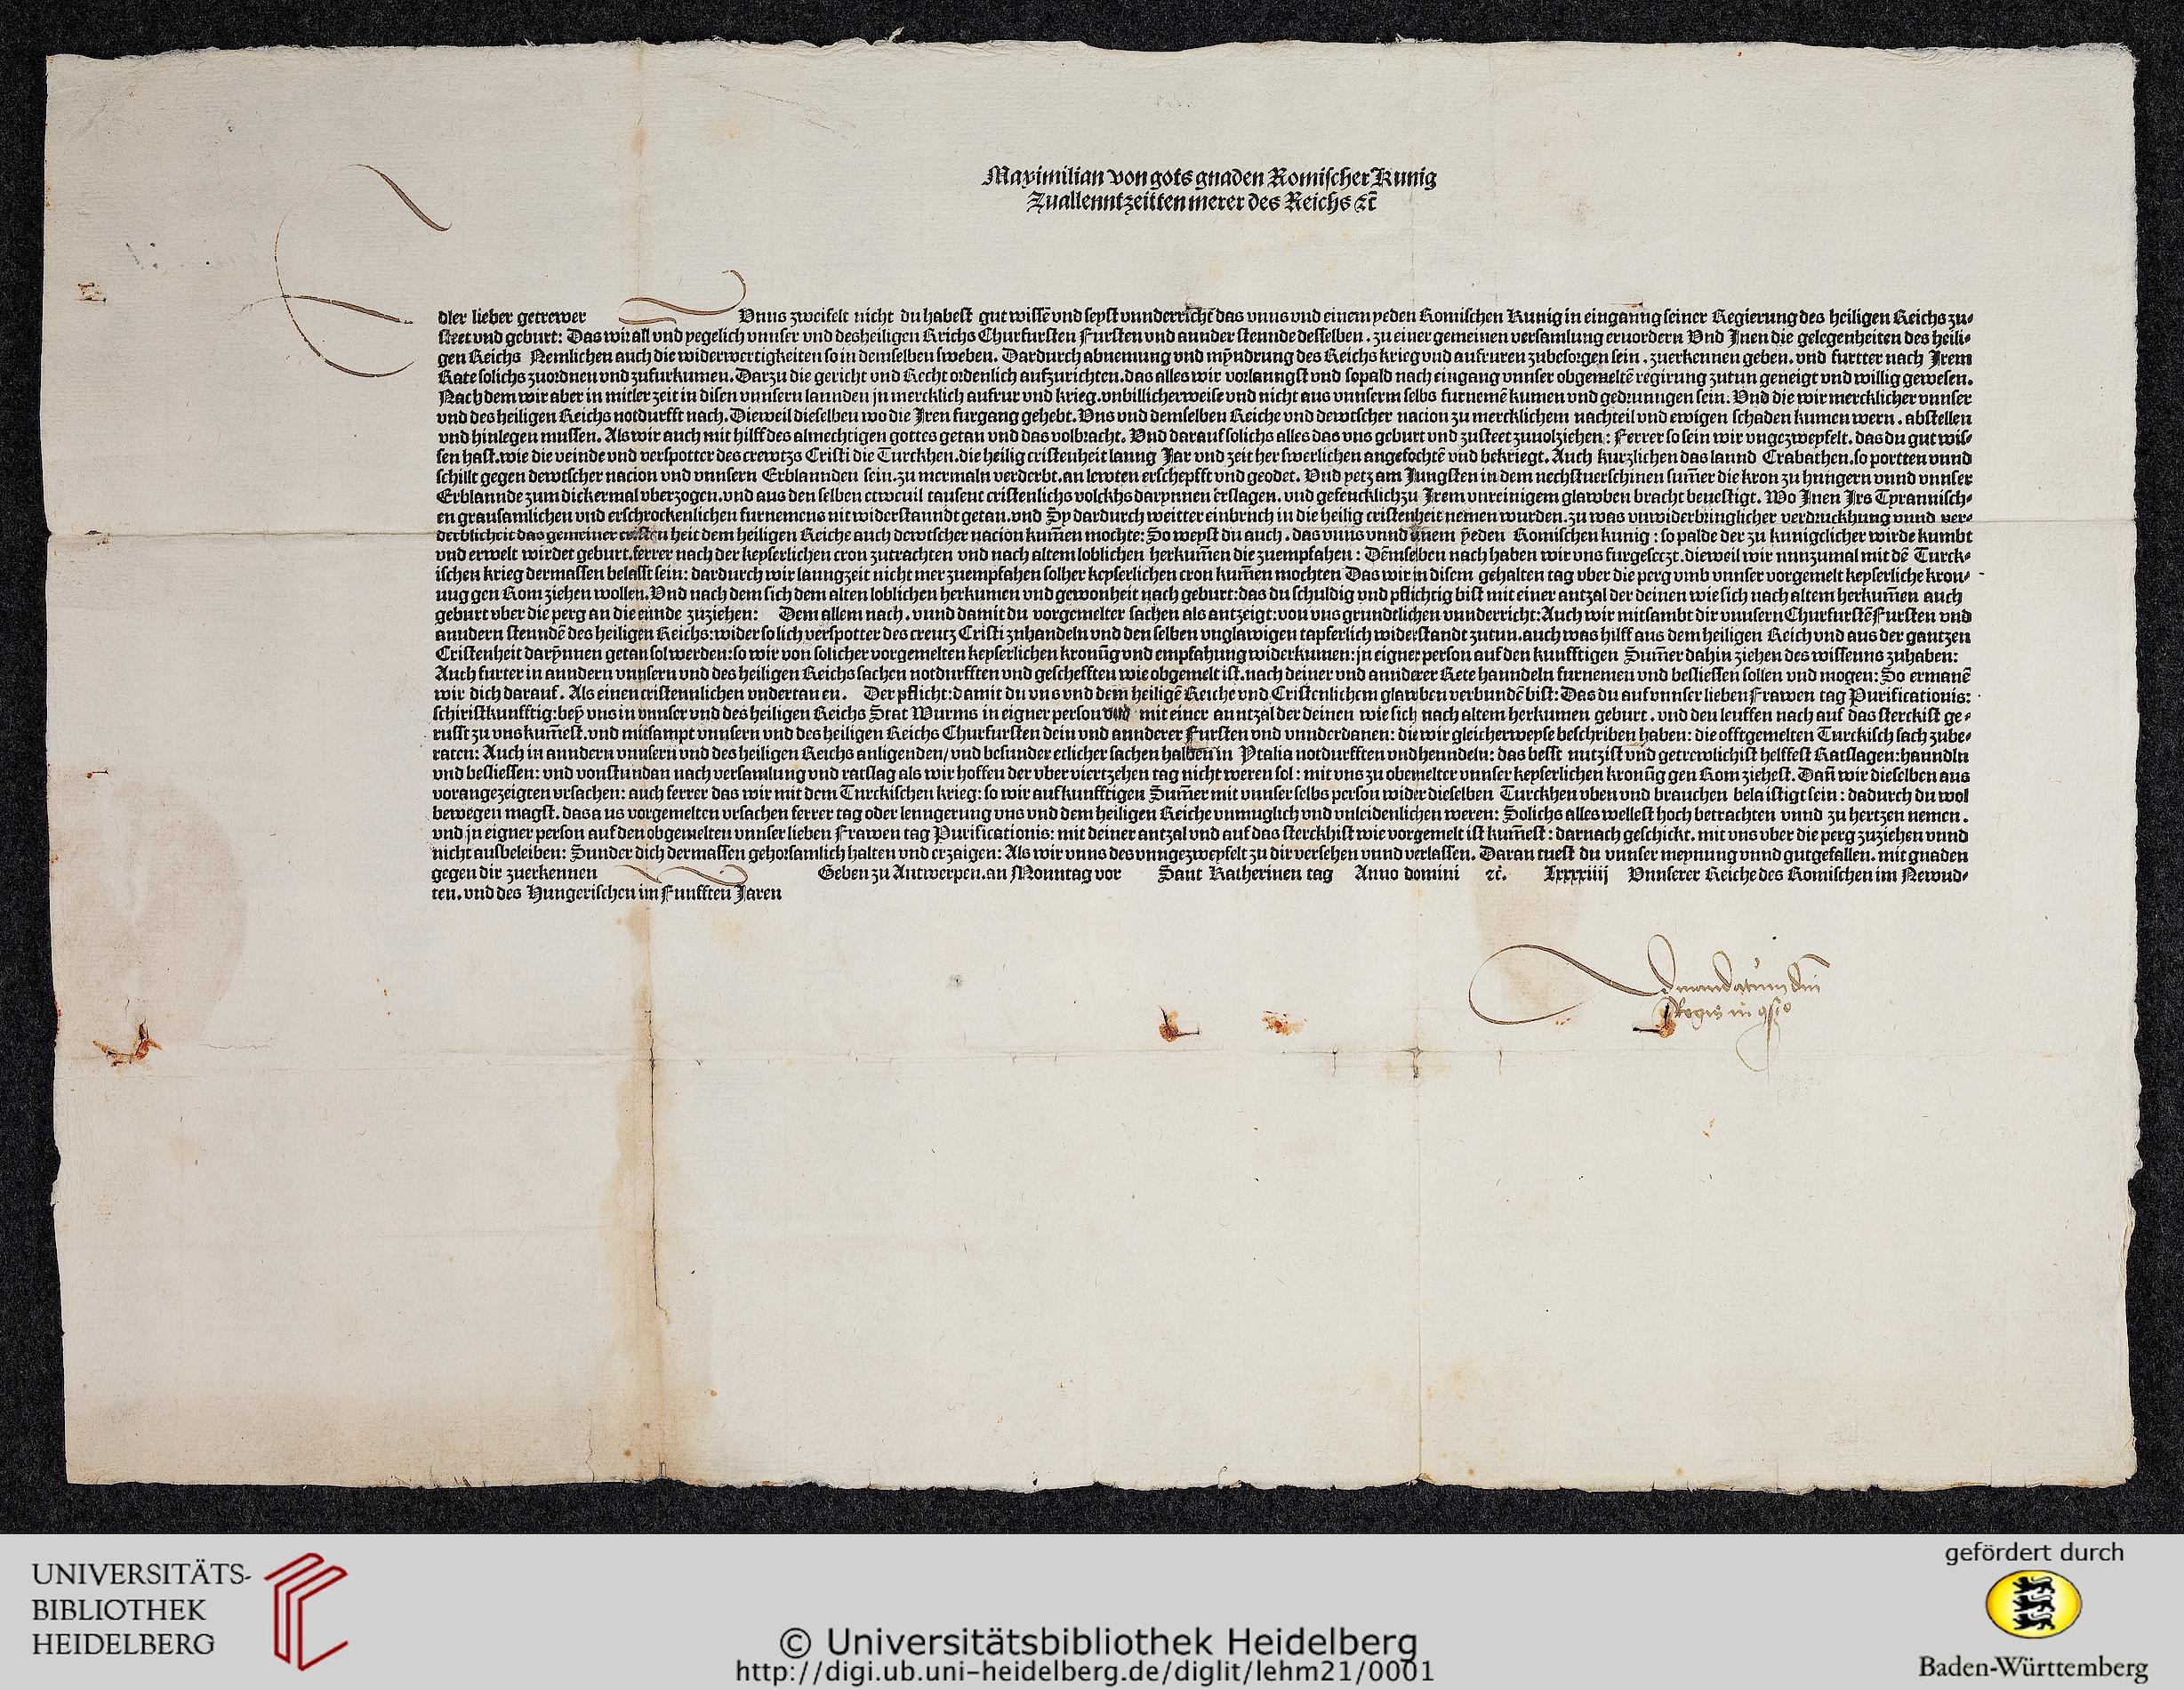 Maximilian von gots gnaden Romischer Kunig
Zuallenntzeitten merer des Reichs ⁊c̃
Edler lieber getrewer Vnns zweifelt nicht du habest gut wissē vnd seyst vnnderricht das vnns vnd einem yeden Romischen Kunig in eingannng seiner Regierung des heiligen Reichs zu-
steet vnd geburt: Das wir all vnd yegelich vnnser vnd desheiligen Krichs Churfursten Fursten vnd annder stennde desselben. zu einer gemeinen versamlung eruordern Vnd Jnen die gelegenheiten des heili-
gen Reichs Nemlichen auch die widerwertigkeiten so in demselben sweben. Dardurch abnemung vnd mÿndrung des Reichs krieg vnd aufruren zubesorgen sein. zuerkennen geben. vnd furtter nach Jrem
Rate solichs zuordnen vnd zufurkumen. Darzu die gericht vnd Recht ordenlich aufzurichten. das alles wir vorlanngst vnd sopald nach eingang vnnser obgemeltē regirung zutun geneigt vnd willig gewesen.
Nach dem wir aber in mitler zeit in disen vnnsern lannden jn mercklich aufrur vnd krieg. vnbillicherweise vnd nicht aus vnnserm selbs furnemē kumen vnd gedrunngen sein: Vnd die wir mercklicher vnnser
vnd des heiligen Reichs notdurfft nach. Dieweil dieselben wo die Jren furgang gehebt. Vns vnd demselben Reiche vnd dewtscher nacion zu mercklichem nachteil vnd ewigen schaden kumen wern. abstellen
vnd hinlegen mussen. Als wir auch mit hilff des almechtigen gottes getan vnd das volbracht. Vnd darauf solichs alles das vns geburt vnd zusteet zuuolziehen: Ferrer so sein wir vngezweyfelt. das du gut wis-
sen hast. wie die veinde vnd verspotter des crewtzs Cristi die Turckhen. die heilig cristenheit lanng Jar vnd zeit her swerlichen angefochtē vnd bekriegt. Auch kurzlichen das lannd Crabathen. so portten vnnd
schillt gegen dewtscher nacion vnd vnnsern Erblannden sein. zu mermaln verderbt. an lewten erschepfft vnd geodet. Vnd yetz am Jungsten in dem nechstuerschinen sum̃er die kron zu hungern vnnd vnnser
Erblannde zum dickermal vberzogen. vnd aus den selben etweuil tausent cristenlichs volckhs darynnen erslagen. vnd gefencklich zu Jrem vnreinigem glawben bracht beuestigt. Wo Jnen Jrs Tyrannisch-
en grausamlichen vnd erschrockenlichen furnemens nit widerstanndt getan. vnd Sy dardurch weitter einbruch in die heilig cristenheit nemen wurden. zu was vnwiderbringlicher verdruckhung vnnd ver-
derblicheit das gemeiner cristen heit dem heiligen Reiche auch dewtscher nacion kum̃en mochte: So weyst du auch. das vnns vnnd einem ÿeden Romischen kunig: so palde der zu kuniglicher wirde kumbt
vnd erwelt wirdet geburt. ferrer nach der keyserlichen cron zutrachten vnd nach altem loblichen herkum̃en die zuempfahen: Dēmselben nach haben wir vns furgesetzt. dieweil wir nunzumal mit dē Turck-
ischen krieg dermassen belasst sein: dardurch wir lanngzeit nicht mer zuempfahen solher keyserlichen cron kum̃en mochten Das wir in disem gehalten tag vber die perg vmb vnnser vorgemelt keyserliche kron-
nung gen Rom ziehen wollen. Vnd nach dem sich dem alten loblichen herkumen vnd gewonheit nach geburt: das du schuldig vnd pflichtig bist mit einer antzal der deinen wie sich nach altem herkum̃en auch
geburt vber die perg an die ennde zuziehen: Dem allem nach. vnnd damit du vorgemelter sachen als antzeigt: von vns grundtlichen vnnderricht: Auch wir mitsambt dir vnnsern Churfurstē Fursten vnd
anndern stenndē des heiligen Reichs: wider solich verspotter des creutz Cristi zuhandeln vnd den selben vnglawigen tapferlich widerstandt zutun. auch was hilff aus dem heiligen Reich vnd aus der gantzen
Cristenheit darÿnnen getan sol werden: so wir von solicher vorgemelten keyserlichen kronũg vnd empfahung widerkumen: jn eigner person auf den kunfftigen Sum̃er dahin ziehen des wissenns zuhaben:
Auch furter in anndern vnnsern vnd des heiligen Reichs sachen notdurfften vnd geschefften wie obgemelt ist. nach deiner vnd annderer Rete hanndeln furnemen vnd besliessen sollen vnd mogen: So ermanē
wir dich darauf. Als einen cristennlichen vndertanen. Der pflicht: damit du vns vnd dem heiligē Reiche vnd Cristenlichem glawben verbundē bist: Das du auf vnnser lieben Frawen tag Purificationis:
schiristkunfftig: beÿ vns in vnnser vnd des heiligen Reichs Stat Wurms in eigner person vnd mit einer anntzal der deinen wie sich nach altem herkumen geburt. vnd den leuffen nach auf das sterckist ge-
russt zu vns kum̃est. vnd mitsampt vnnsern vnd des heiligen Reichs Churfursten dein vnd annderer Fursten vnd vnnderdanen: die wir gleicherweyse beschriben haben: die offtgemelten Turckisch sach zube-
raten: Auch in anndern vnnsern vnd des heiligen Reichs anligenden/ vnd besunder etlicher sachen halben in Ytalia notdurfften vnd henndeln: das besst nutzist vnd getrewlichist helffest Ratslagen: hanndln
vnd besliessen: vnd vonstundan nach versamlung vnd ratslag als wir hoffen der vber viertzehen tag nicht weren sol: mit vns zu obemelter vnnser keyserlichen kronũg gen Rom ziehest. Dañ wir dieselben aus
vorangezeigten vrsachen: auch ferrer das wir mit dem Turckischen krieg: so wir auf kunfftigen Sum̃er mit vnnser selbs person wider dieselben Turckhen vben vnd brauchen belaistigt sein: dadurch du wol
bewegen magst. das aus vorgemelten vrsachen ferrer tag oder lenngerung vns vnd dem heiligen Reiche vnmuglich vnd vnleidenlichen weren: Solichs alles wellest hoch betrachten vnnd zu hertzen nemen.
vnd jn eigner person auf den obgemelten vnnser lieben Frawen tag Purificationis: mit deiner antzal vnd auf das sterckhist wie vorgemelt ist kum̃est: darnach geschickt. mit vns vber die perg zuziehen vnnd
nicht ausbeleiben: Sunder dich dermassen gehorsamlich halten vnd erzaigen: Als wir vnns des vnngezweyfelt zu dir versehen vnnd verlassen. Daran tuest du vnnser meynung vnnd gutgefallen. mit gnaden
gegen dir zuerkennen Geben zu Antwerpen. an Monntag vor Sant Katherinen tag Anno domini ⁊c̃. Lxxxxiiij Vnnserer Reiche des Romischen im Newnd-
ten. vnd des Hungerischen im Funfften Jaren
Ad mandatum dni
Regis in
UNIVERSITÄTS-
BIBLIOTHEK
HEIDELBERG
gefördert durch
Baden-Württemberg
© Universitätsbibliothek Heidelberg
http://digi.ub.uni-heidelberg.de/diglit/lehm21/0001